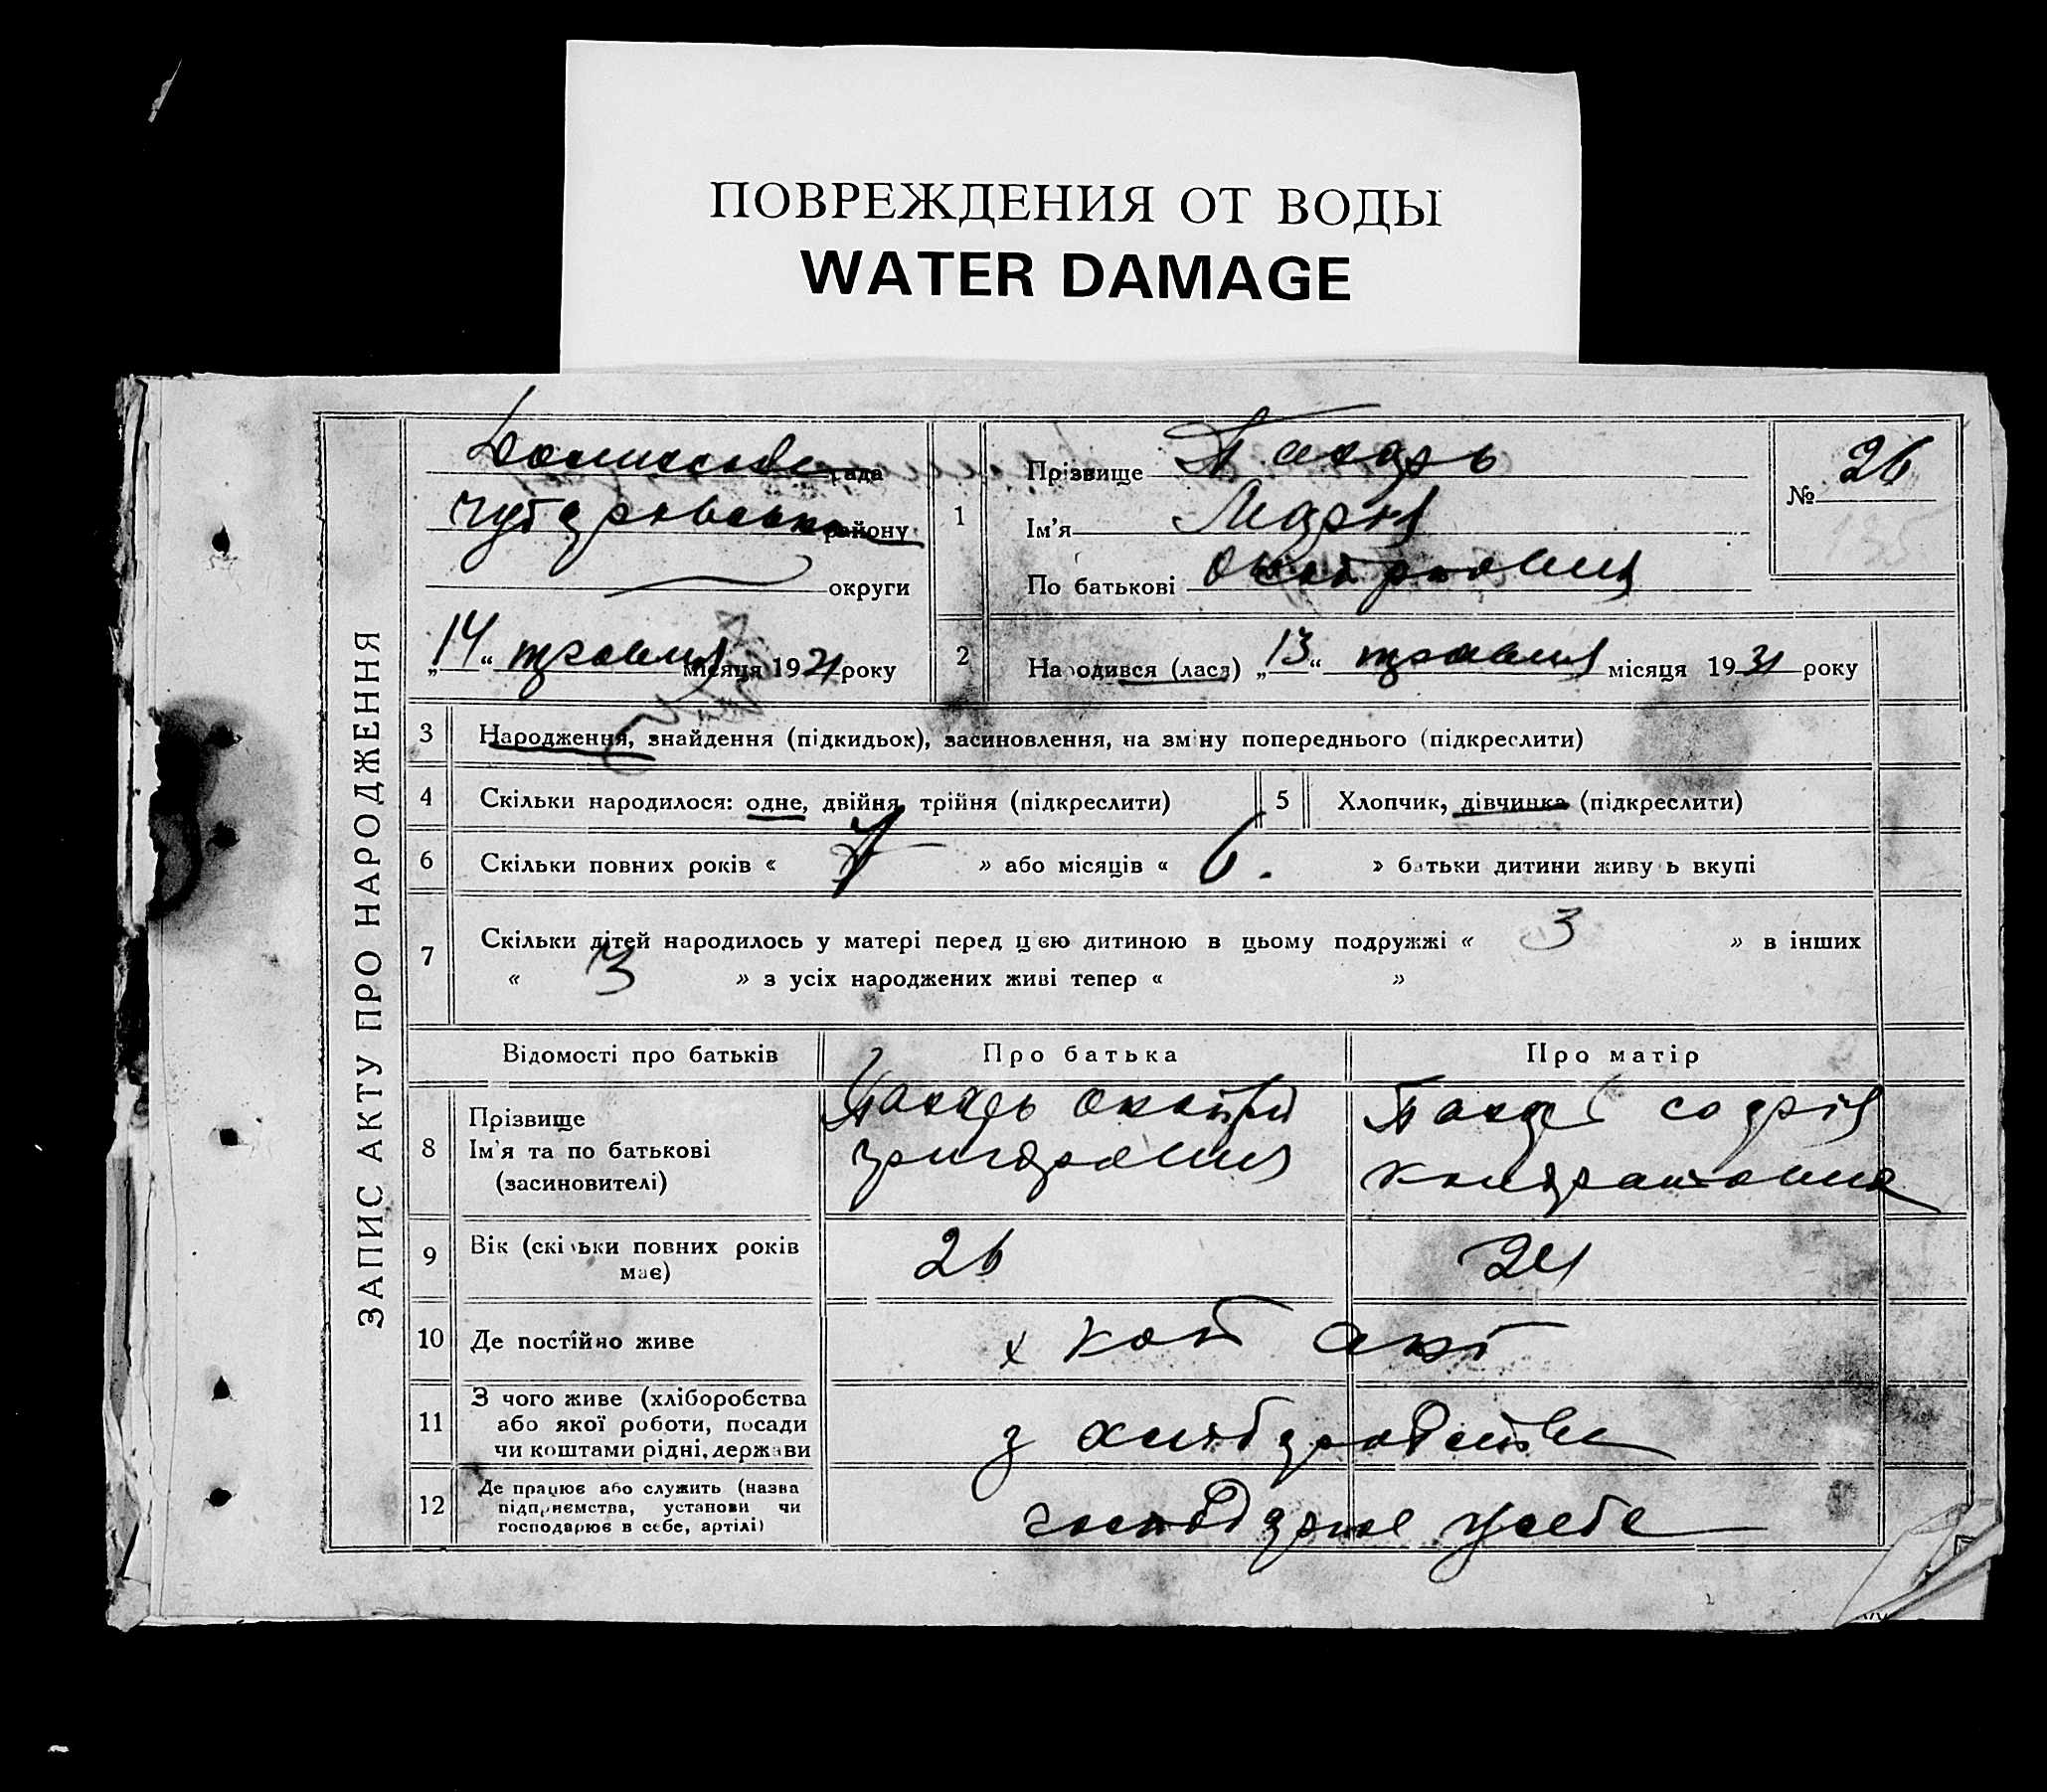 ПОВРЕЖДЕНИЯ ОТ ВОДЫ
WATER DAMAGE
ЗАПИС АКТУ ПРО НАРОДЖЕННЯ
рада
району
округи
„14“ травня місяця 1931 року
1
Прізвище
Ім'я Марія
По батькові
№ 26
2 Народився (лася) „13“ травня місяця 1931 року
3 Народження, знайдення (підкидьок), засиновлення, на зміну попереднього (підкреслити)
4 Скільки народилося: одне, двійня, трійня (підкреслити)
5 Хлопчик, дівчинка (підкреслити)
6 Скільки повних років « 7 » або місяців « 6. » батьки дитини живуть вкупі
7 Скільки дітей народилось у матері перед цією дитиною в цьому подружжі « 3 » в інших
« 3 » з усіх народжених живі тепер « »
Відомості про батьків Про батька Про матір
8 Прізвище
Ім'я та по батькові
(засиновителі)
9 Вік (скільки повних років
має)
26 24
10 Де постійно живе х
11 З чого живе (хліборобства
або якої роботи, посади
чи коштами рідні, держави
з хліборобства
12 Де працює або служить (назва
підприємства, установи чи
господарює в себе, артілі)
господарює у себе